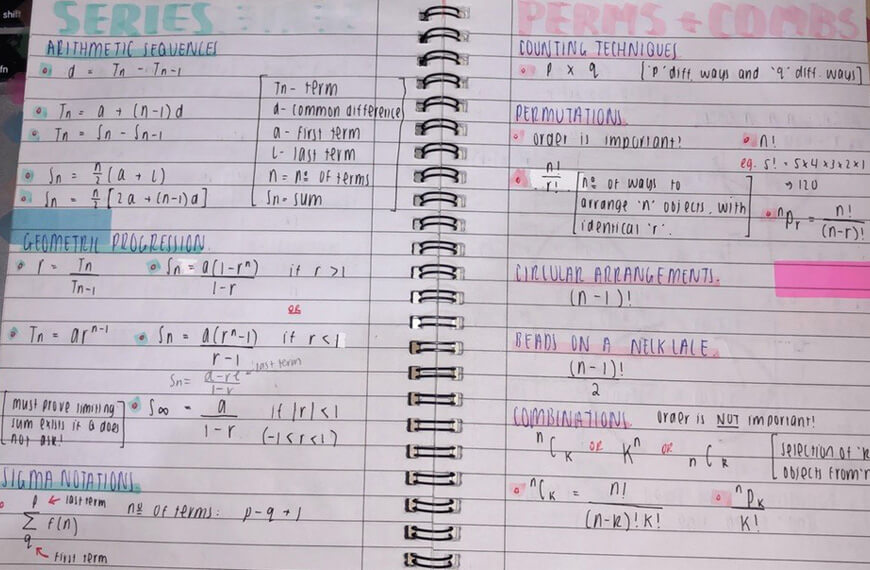 shift
fn
SERIES
ARITHMETIC SEQUENCES
d = Tn - Tn-1
Tn = a + (n-1)d
Tn = Sn - Sn-1
Sn = n/2 (a + l)
Sn = n/2 [2a + (n-1)d]
Tn - term
d - common difference
a - first term
l - last term
n = nº of terms
Sn = sum
GEOMETRIC PROGRESSION.
r = Tn / Tn-1
Sn = a(1-rⁿ) / 1-r if r > 1
OR
Tn = arⁿ⁻¹
Sn = a(rⁿ-1) / r-1 if r < 1
Sn = a-rl / 1-r last term
must prove limiting
sum exists if Q does
not ask!
S∞ = a / 1-r if |r| < 1
(-1 < r < 1)
SIGMA NOTATIONS
p ← last term
Σ f(n)
q
↖ First term
nº of terms: p - q + 1
PERMS + COMBS
COUNTING TECHNIQUES
p x q ['p' diff. ways and 'q' diff. ways]
PERMUTATIONS.
order is important!
n!
eg. 5! = 5x4x3x2x1
→ 120
n! / r!
nº of ways to
arrange 'n' objects, with
identical 'r'.
ⁿPr = n! / (n-r)!
CIRCULAR ARRANGEMENTS.
(n-1)!
BEADS ON A NECKLALE.
(n-1)! / 2
COMBINATIONS order is NOT important!
ⁿCK OR Kⁿ OR nCK
[selection of 'k
objects from 'n
ⁿCK = n! / (n-k)! K!
ⁿPK / K!